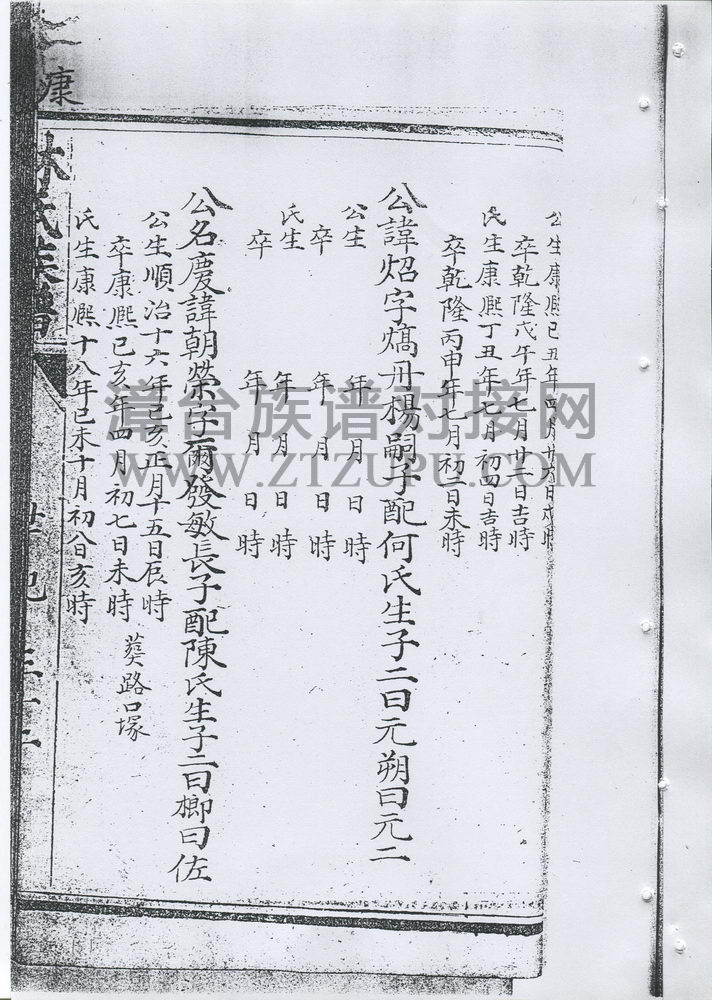 公生康熙己丑年四月廿六日戌時
卒乾隆戊午年七月廿二日吉時
氏生康熙丁丑年七月初四日吉時
卒乾隆丙申年七月初二日未時
公諱炤字熇丹楊嗣子配何氏生子二曰元朔曰元二
公生 年 月 日 時
卒 年 月 日 時
氏生 年 月 日 時
卒 年 月 日 時
公名慶諱朝榮字爾發敏長子配陳氏生子二曰榔曰佐
公生順治十六年己亥正月十五日辰時
卒康熙己亥年四月初七日未時 葬路口塚
氏生康熙十八年己未十月初八日亥時
林氏族譜 世紀
康
漳台族谱对接网
WWW.ZTZUPU.COM